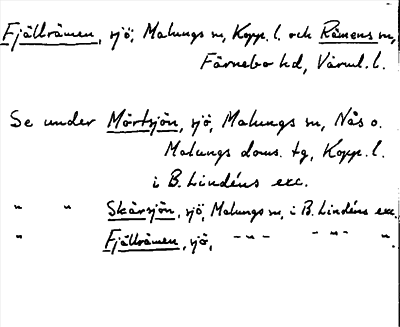 Fjällrämen, sjö, Malungs sn, Kopp. l. och Rämens sn,
Färnebo hd, Värml. l.
Se under Mörtsjön, sjö, Malungs sn, Nås o.
Malungs doms. tg, Kopp. l.
i B. Lindéns exc.
" " Skärsjön, sjö, Malungs sn, i B. Lindéns exc.
" Fjällrämen, sjö, - " - - " - ".